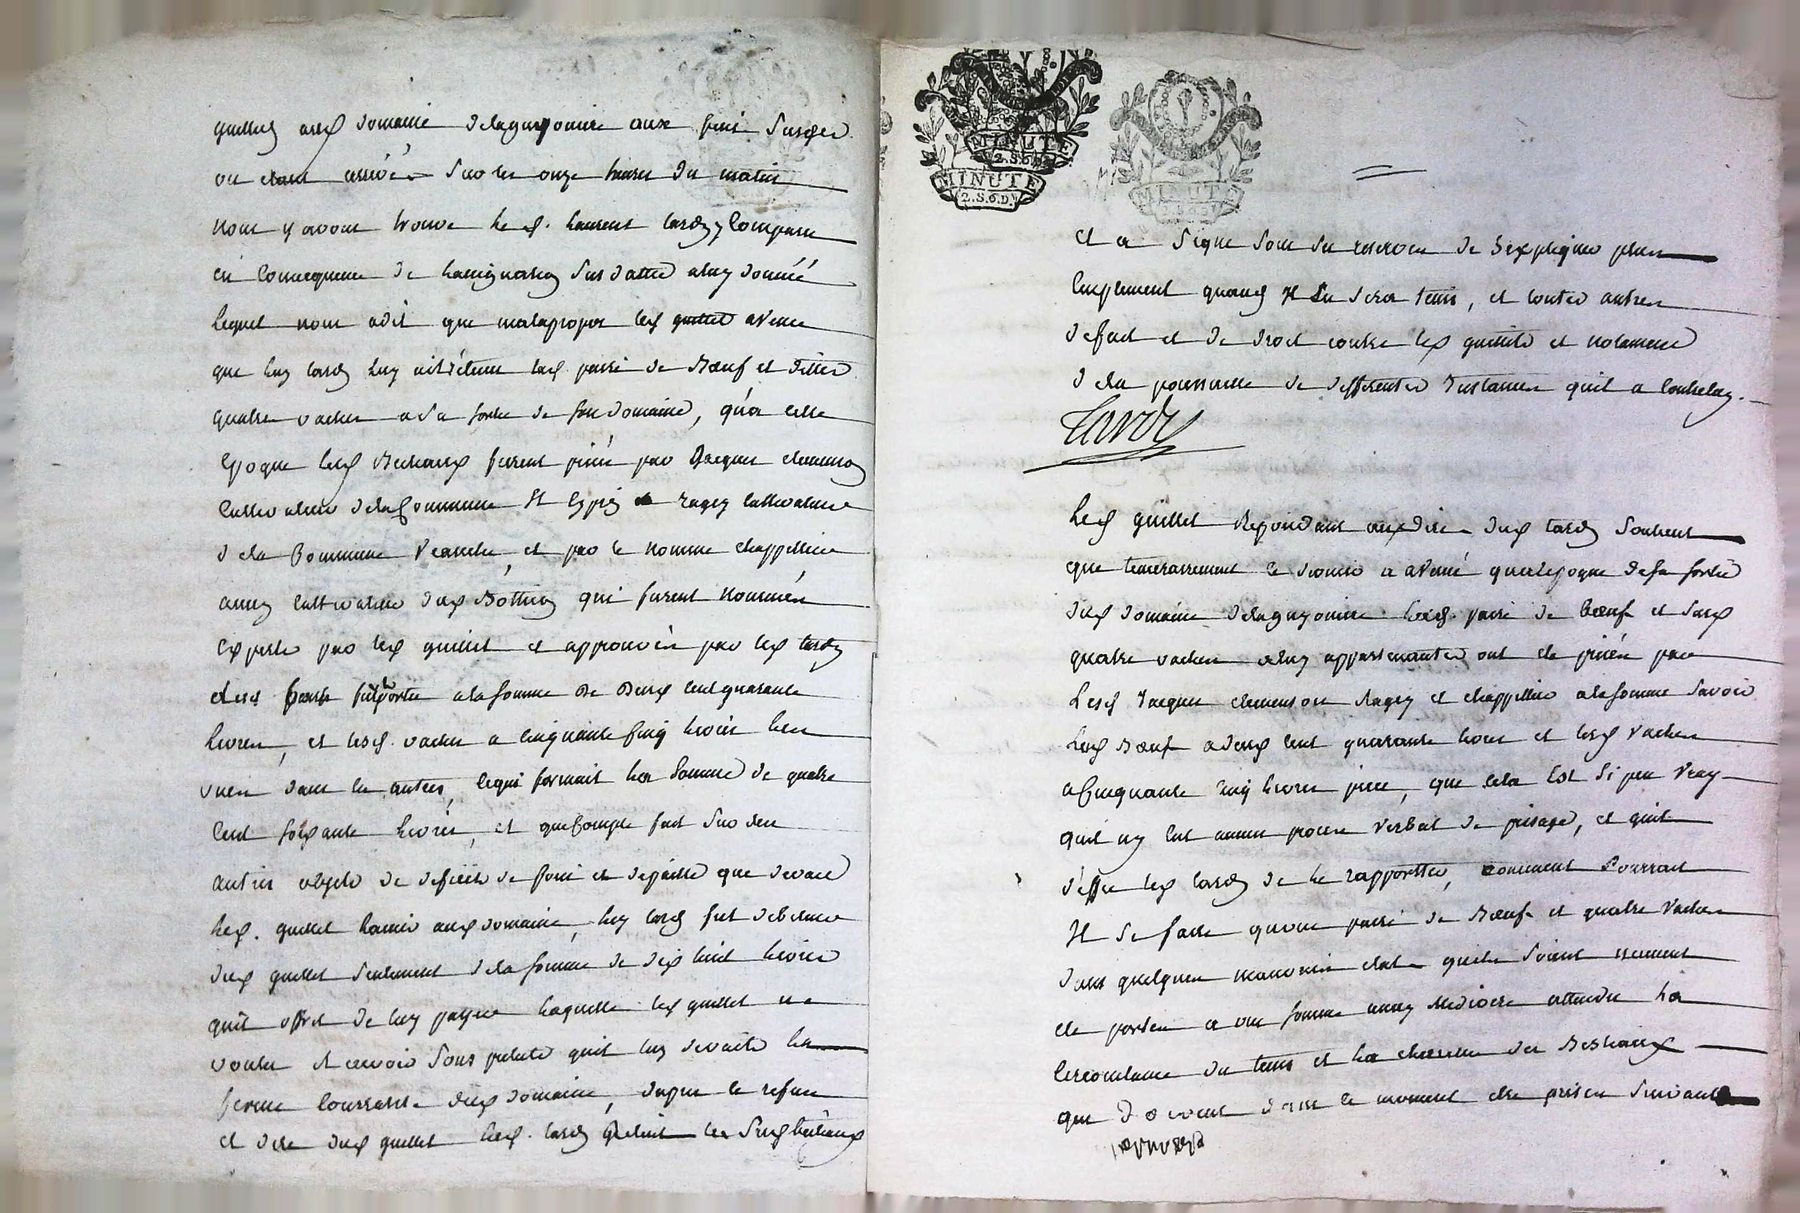 guillet aud domaine delaguyonire aux fins susd
ou etant arrivés sur les onze heures du matin
nous y avons trouvé le d. laurent tardy, comparu
en consequence de lassignation susdatté aluy donné
lequel nous a dit que malapropos led guillet avence
que luy tardy luy ait retenu lad paire de Bœuf et dittes
quatre vaches a sa sortie de son domaine, qu'a cette
Epoque lesd Bestiaux furent prisés par Jacques clemenson
Cultivateur dela Commune St
dela Commune et par le nommé chappellier
cultivateur qui furent Nommés
Experts par led guillet et approuvés par led tardy
a la somme de Deux cent quarante
livres, et lesd. vaches a cinquante cinq livres les
unes dans les autres, ce qui formait la somme de quatre
cent soixante livres, et que compte fait sur les
autres objets de deficits de foin et de paille que devait
led. guillet laisser aud domaine, luy tardy fut debiteur
dud guillet seulement dela somme de dix huit livres
quil offrit de luy payer laquelle led guillet n'a
voulu Recevoir sous pretexte quil luy devaits la
ferme courrante dud domaine, dapres le refus
et dire dud guillet led. tardy
MINUTE
2.S.6.D.
MINUTE
2.S.6.D.
MINUTE
et a signé sous la reserve de sexpliquer plus
emplement quand Il en sera tems, et toutes autres
de fait et de droit contre led guillet et notament
dela poursuitte de differentes Instances quil a contreluy.
Tardy
Led guillet Repondant aux dires dud tardy soutient
que temerairement ce dernier a avencé qua lepoque de sa sortie
dud domaine delaguyonire lad. paire de bœuf et susd
quatre vaches aluy appartenantes ont été prisés par
Lesd Jacques clemenson Ragey et chappellier ala somme savoir
Lesd Bœuf a deux cent quarante livres et lesd vaches
a Cinquante cinq livres piece, que cela Est si peu vray
quil ny eut aucun proces verbal de prisage, et quil
deffie led tardy de le rapportter, comment Pourrait
Il se faire qu'une paire de Bœuf et quatre vaches
dans quelques mauvais etat quils soient ussent
été portés a une somme aussy mediocre attendu la
circonstance du tems et la cherté des Bestiaux
que doivent dans le moment etre prises suivant